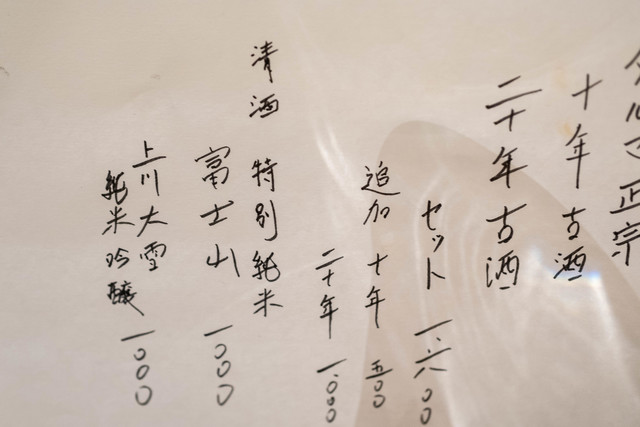 正宗
十年古酒
二十年古酒
セット 一.六〇〇
追加 十年 五〇〇
二十年 一.〇〇〇
清酒 特別純米
富士山 一〇〇〇
上川大雪
純米吟醸 一〇〇〇